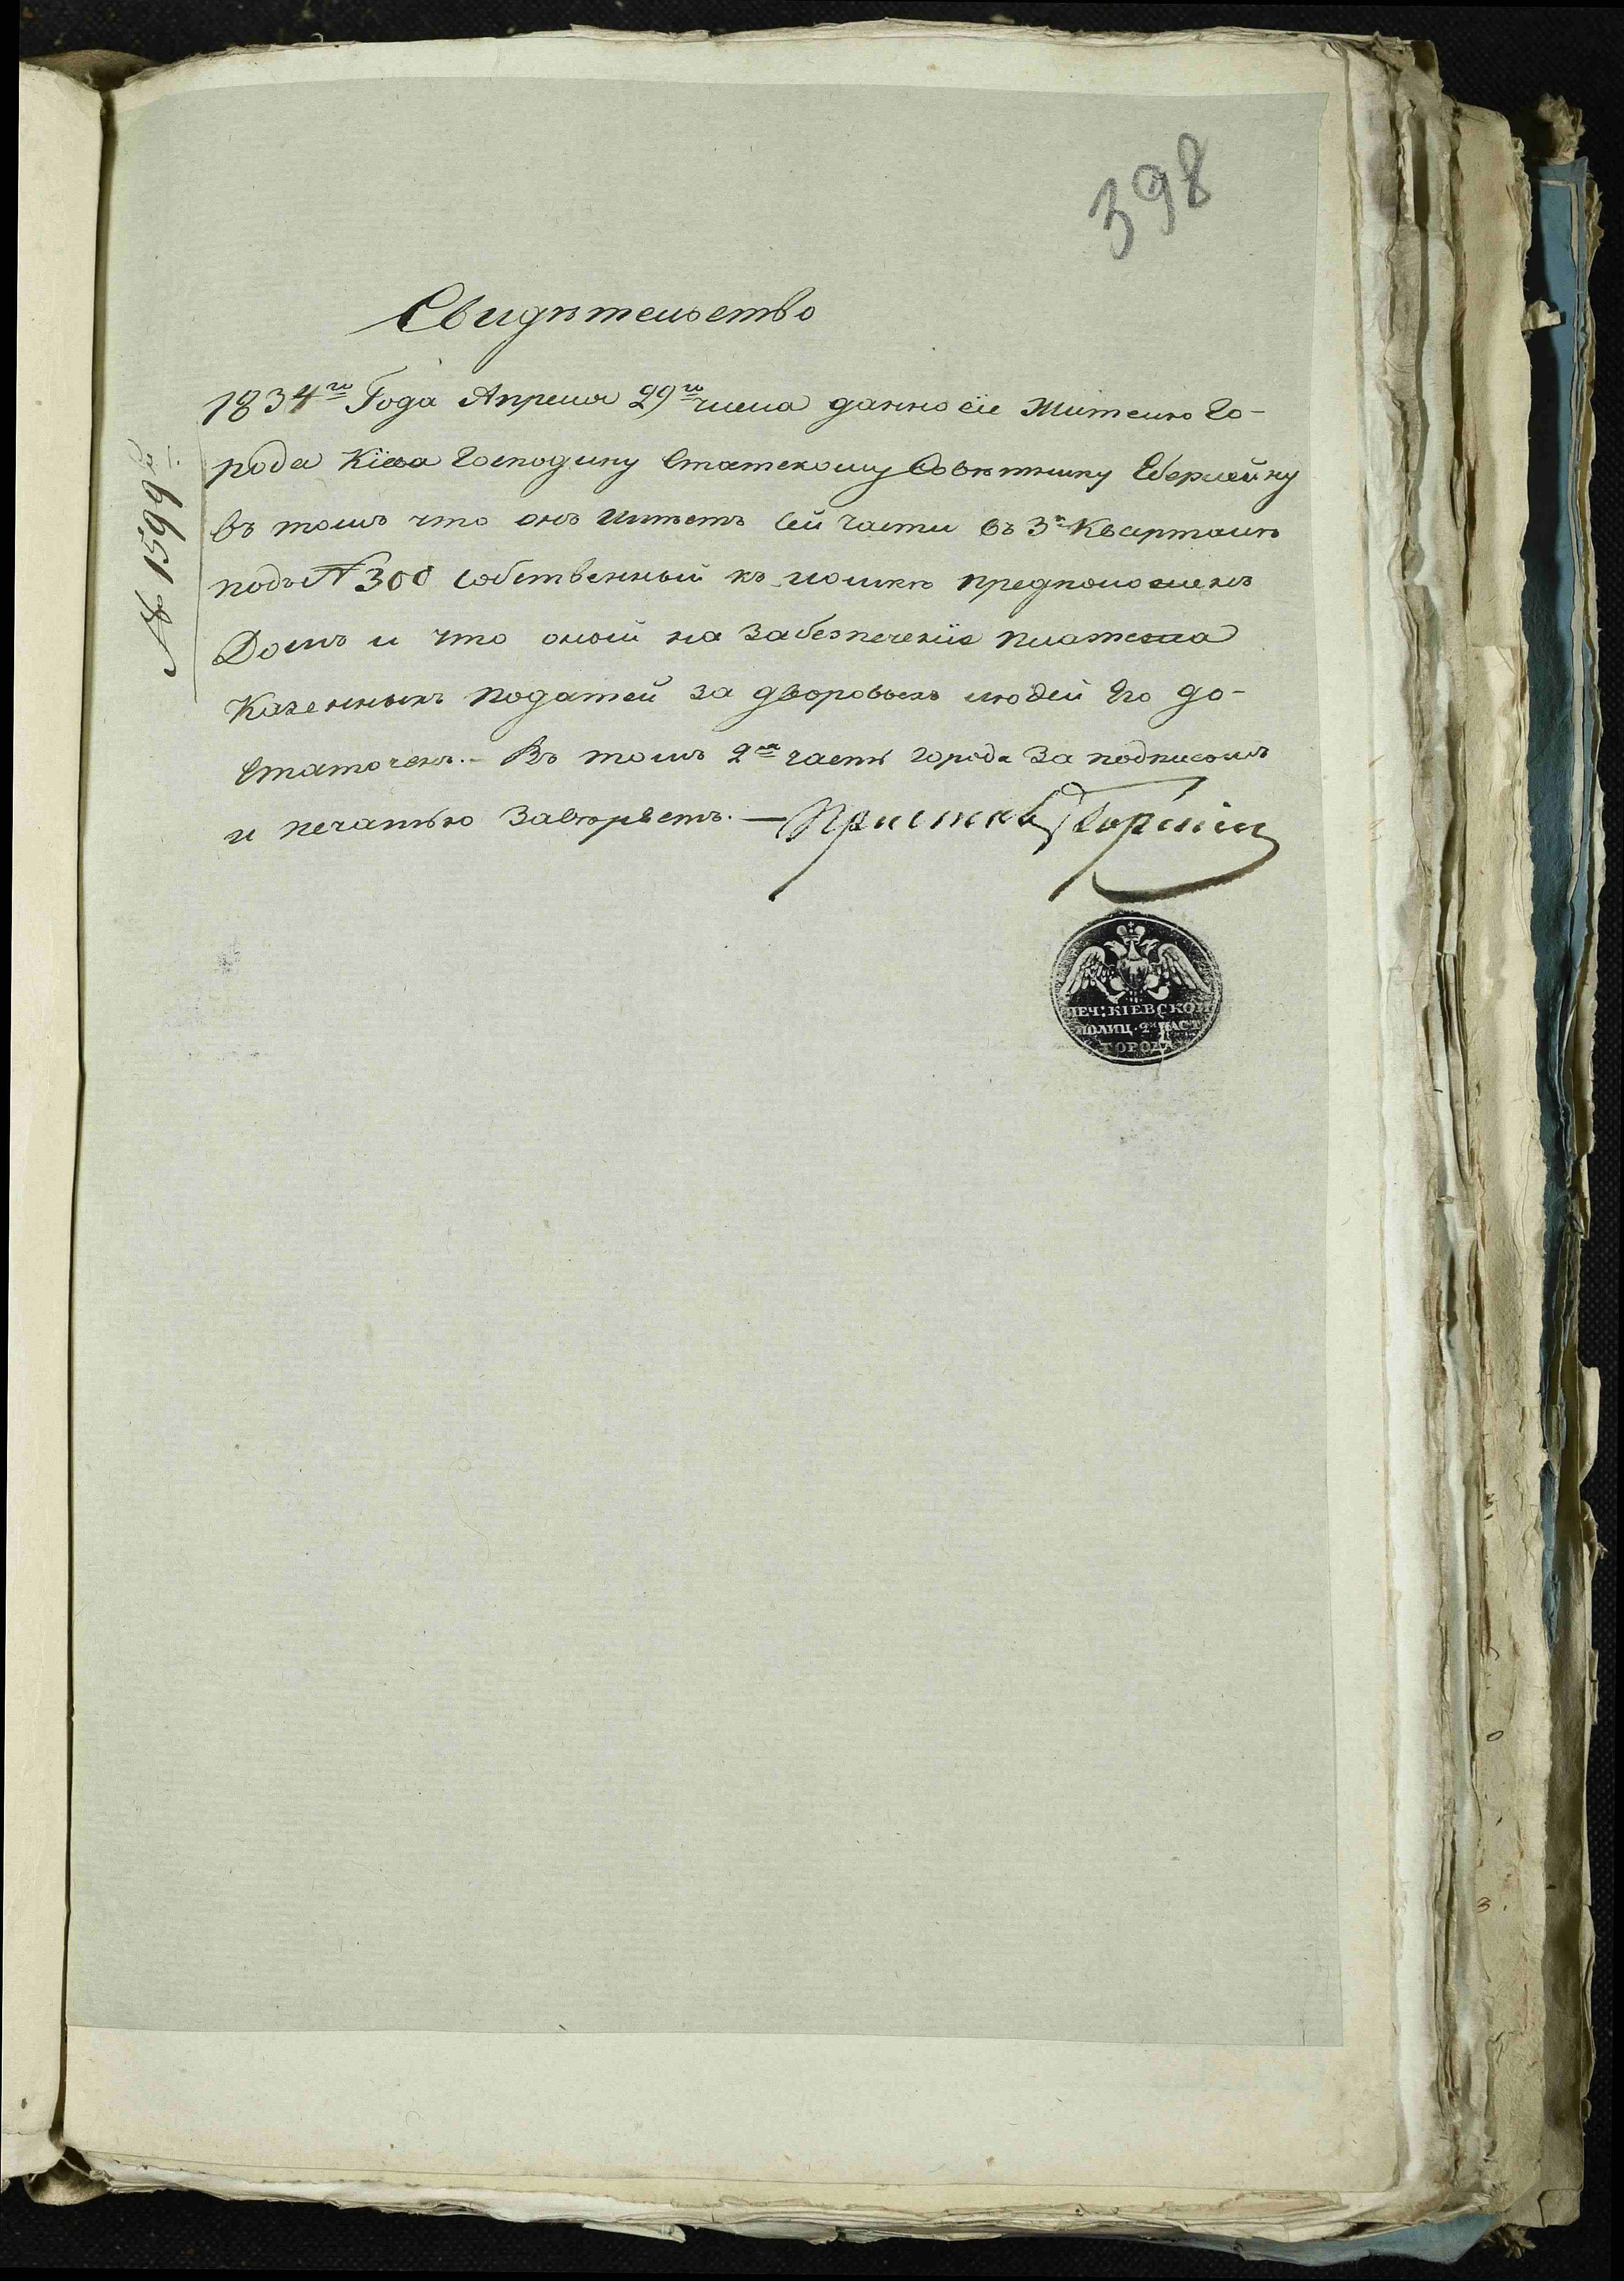 398
Свидѣтельство
№ 1599й
1834го Года Апреля 29го числа данно сіе Жителю Го-
рода Кіева Господину Статскому Совѣтнику Ебергейну
въ томъ что онъ Имѣетъ Сей Части въ 3м Квартале
подъ № 300 Собственный къ предположенъ
Домъ и что оной на Забезпеченіе платежа
Казенныхъ податей за дворовыхъ людей Его до-
Статочен.- Въ томъ 2я часть города За подписомъ
и печатью Завѣряетъ. — Приставъ
ПЕЧ: КІЕВСКОЙ
ПОЛИЦ. 2й ЧАСТ
ГОРОДА